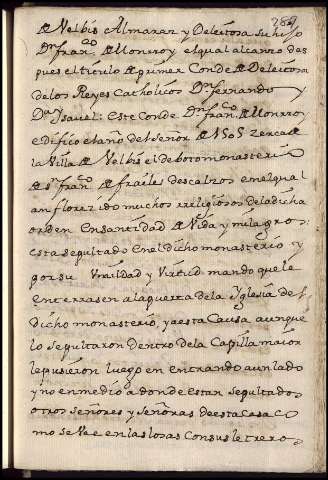 289
de Velbis Almaraz y Deleitosa su hijo
Dn franco. de Monrroy el qual alcanzo des
pues el titulo de primer Conde de Deleitosa
de los Reyes Catholicos Dn ferrando y
Da Ysavel: Este Conde Dn franco. de Monrroy
edifico el año del señor de 1505 zerca de
la Villa de Velbis el deboto monasterio
de sn franco. de frailes descalzos en el qual
an florezido muchos rreligiosos de la dicha
orden En santidad de Vida y milagros:
esta sepultado en el dicho monasterio y
por su Vmildad y Virtud mando que le
enterrasen a la puerta de la Yglesia del
dicho monasterio, ya esta Causa aunque
lo sepultaron dentro de la Capilla maior
le pusieron luego en entrando a un lado
y no en medio a donde estan sepultados
otros señores y señoras de esta casa co
mo se Vee en las losas con sus letreros.